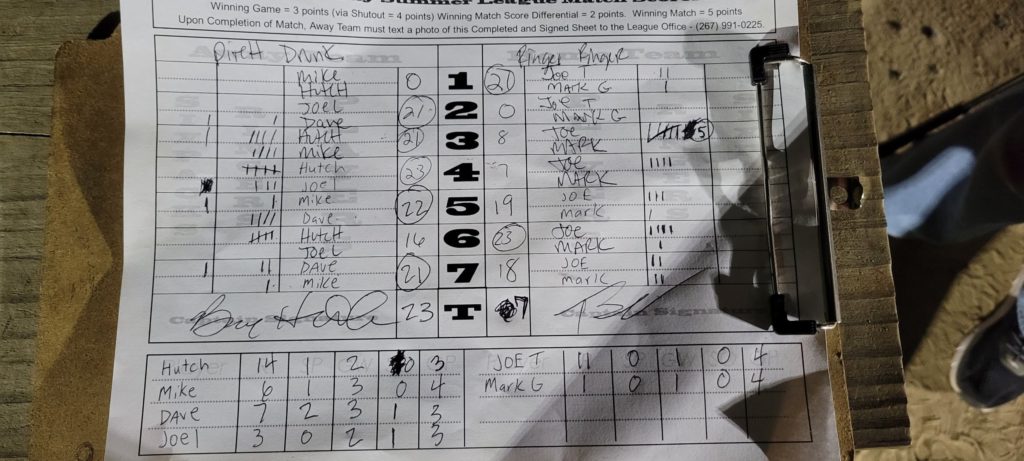 Summer League Match Score
Winning Game = 3 points (via Shutout = 4 points) Winning Match Score Differential = 2 points. Winning Match = 5 points
Upon Completion of Match, Away Team must text a photo of this Completed and Signed Sheet to the League Office - (267) 991-0225.
Drunk Ringer
Mike 0 1 21 Joe T
Hutch Mark G
Joel 21 2 0 Joe T
Dave Mark G
Hutch 21 3 8 Joe 5
Mike Mark
Hutch 23 4 7 Joe
Joel Mark
Mike 22 5 19 Joe
Dave Mark
Hutch 16 6 23 Joe
Joel Mark
Dave 21 7 18 Joe
Mike Mark
23 T 7
Hutch 14 1 2 0 3 Joe T 11 0 1 0 4
Mike 6 1 3 0 4 Mark G 1 0 1 0 4
Dave 7 2 3 1 3
Joel 3 0 2 1 3